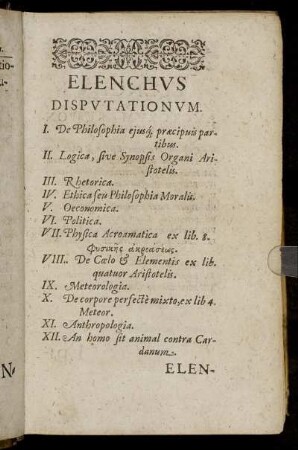 ELENCHVS
DISPVTATIONVM.
I. De Philosophia ejusq́; præcipuis par-
tibus.
II. Logica, sive Synopsis Organi Ari-
stotelis.
III. Rhetorica.
IV. Ethica seu Philosophia Moralis.
V. Oeconomica.
VI. Politica.
VII. Physica Acroamatica ex lib. 8.
Φυσικῆς ἀκροάσεως.
VIII. De Cœlo & Elementis ex lib.
quatuor Aristotelis.
IX. Meteorologia.
X. De corpore perfectè mixto, ex lib 4.
Meteor.
XI. Anthropologia.
XII. An homo sit animal contra Car-
danum.
ELEN-